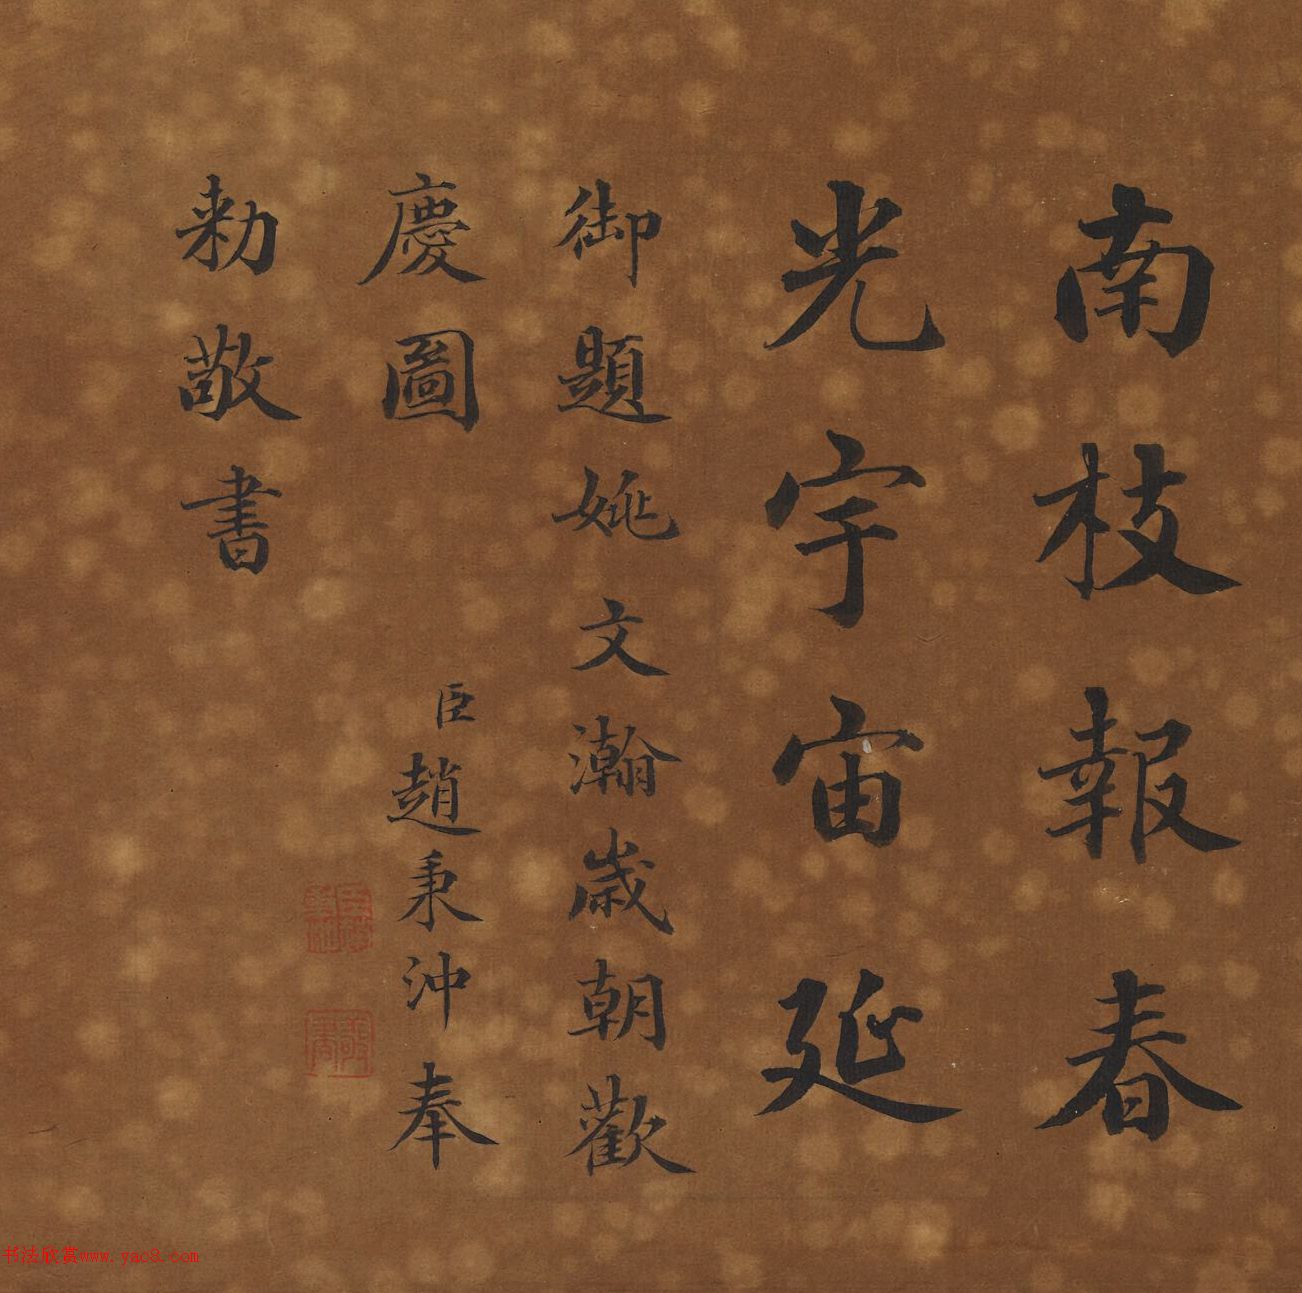 南枝報春
光宇宙延
御題姚文瀚歲朝歡
慶圖　臣趙秉沖奉
勅敬書
书法欣赏www.yac8.com